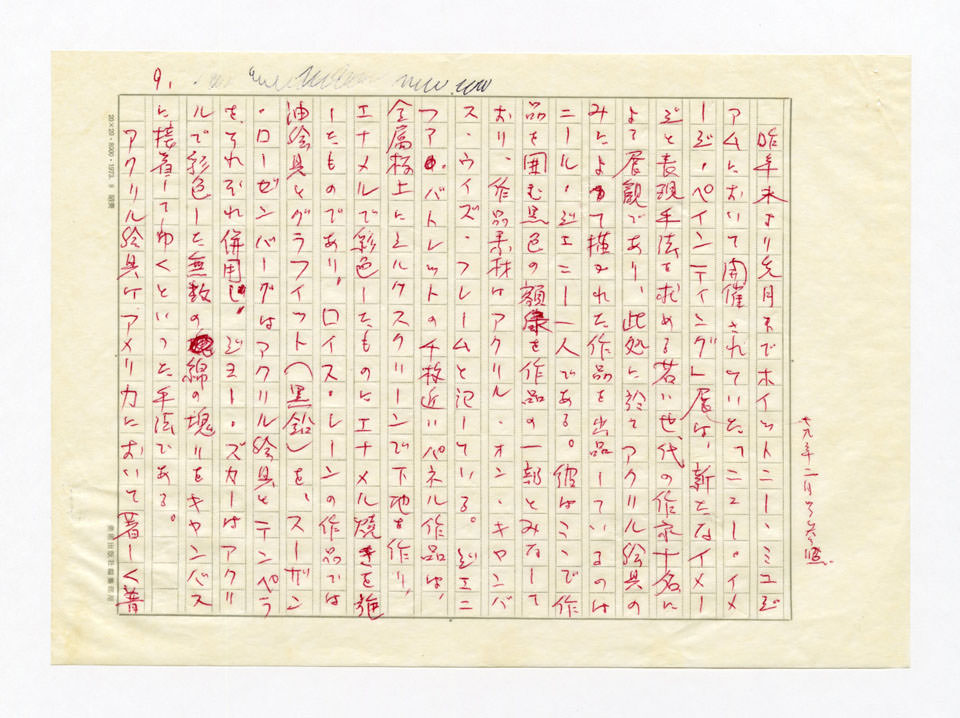 9.
昨年末より先月までホイットニー・ミュージ
アムにおいて開催されていた「ニュー・イメ
ージ・ペインティング」展は、新たなイメー
ジと表現手法を求める若い世代の作家十名に
よる展観であり、此処に於てアクリル絵具の
みによって描かれた作品を出品しているのは
ニール・ジェニー一人である。彼はミンで作
品を囲む黒色の額縁を作品の一部とみなして
おり、作品素材はアクリル・オン・キャンバ
ス・ウィズ・フレームと記している。ジェニ
ファ・バトレットの千枚近いパネル作品は、
金属板上にシルクスクリーンで下地を作り、
エナメルで彩色したものにエナメル焼きを施
したものであり、ロイス・レーンの作品では
油絵具とグラファイト(黒鉛)を、スーザン
・ローゼンバーグはアクリル絵具とテンペラ
を、それぞれ併用し、ジョー・ズカーはアクリ
ルで彩色した無数の綿の塊りをキャンバス
に接着してゆくといった手法である。
アクリル絵具は、アメリカにおいて著しく普
20×20・8000・1973.9 昭栄